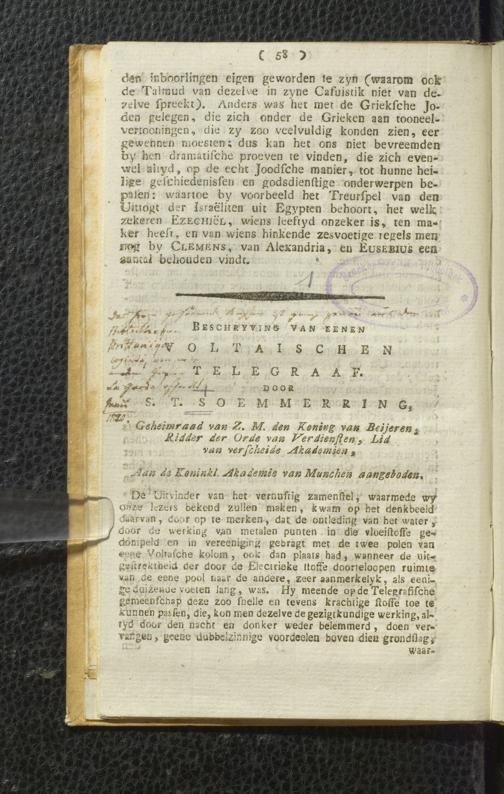 ( 58 )
den inboorlingen eigen geworden te zyn (waarom ook
de Talmud van dezelve in zyne Cafuistik niet van de-
zelve spreekt). Anders was het met de Grieksche Jo-
den gelegen, die zich onder de Grieken aan tooneel-
vertooningen, die zy zoo veelvuldig konden zien, eer
gewennen moesten; dus kan het ons niet bevreemden
by hen dramatische proeven te vinden, die zich even-
wel altyd, op de echt Joodsche manier, tot hunne hei-
lige geschiedenissen en godsdienstige onderwerpen be-
palen: waartoe by voorbeeld het Treurspel van den
Uittogt der Israëliten uit Egypten behoort, het welk
zekeren EZECHIËL, wiens leeftyd onzeker is, ten ma-
ker heeft, en van wiens hinkende zesvoetige regels men
nog by CLEMENS, van Alexandria, en EUSEBIUS een
aantal behouden vindt.
BESCHRYVING VAN EENEN
VOLTAISCHEN
TELEGRAAF.
DOOR
S. T. SOEMMERRING,
Geheimraad van Z. M. den Koning van Beijeren,
Ridder der Orde van Verdiensten, Lid
van verscheide Akademien,
Aan de Koninkl. Akademie van Munchen aangeboden.
De Uitvinder van het vernuftig zamenstel, waarmede wy
onze lezers bekend zullen maken, kwam op het denkbeeld
daarvan, door op te merken, dat de ontleding van het water,
door de werking van metalen punten in die vloeistoffe ge-
dompeld en in vereeniging gebragt met de twee polen van
eene Voltasche kolom, ook dan plaats had, wanneer de uit-
gestrektheid der door de Electrieke stoffe doorteloopen ruimte
van de eene pool naar de andere, zeer aanmerkelyk, als eeni-
ge duizende voeten lang, was. Hy meende op de Telegrafische
gemeenschap deze zoo snelle en tevens krachtige stoffe toe te
kunnen passen, die, kon men dezelve de gezigtkundige werking, al-
tyd door den nacht en donker weder belemmerd, doen ver-
vangen, geene dubbelzinnige voordeelen boven dien grondslag,
waar-